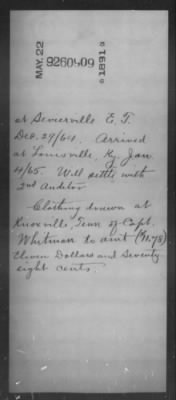 MAY. 22
9260509
1891
at Sevierville E. T.
Dec. 29/64. Arrived
at Louisville, Ky Jan
4/65. Will settle with
2nd Auditor
Clothing drawn at
Knoxville, Tenn of Capt.
Whitman to amt ($11.78)
Eleven Dollars and Seventy
eight cents.